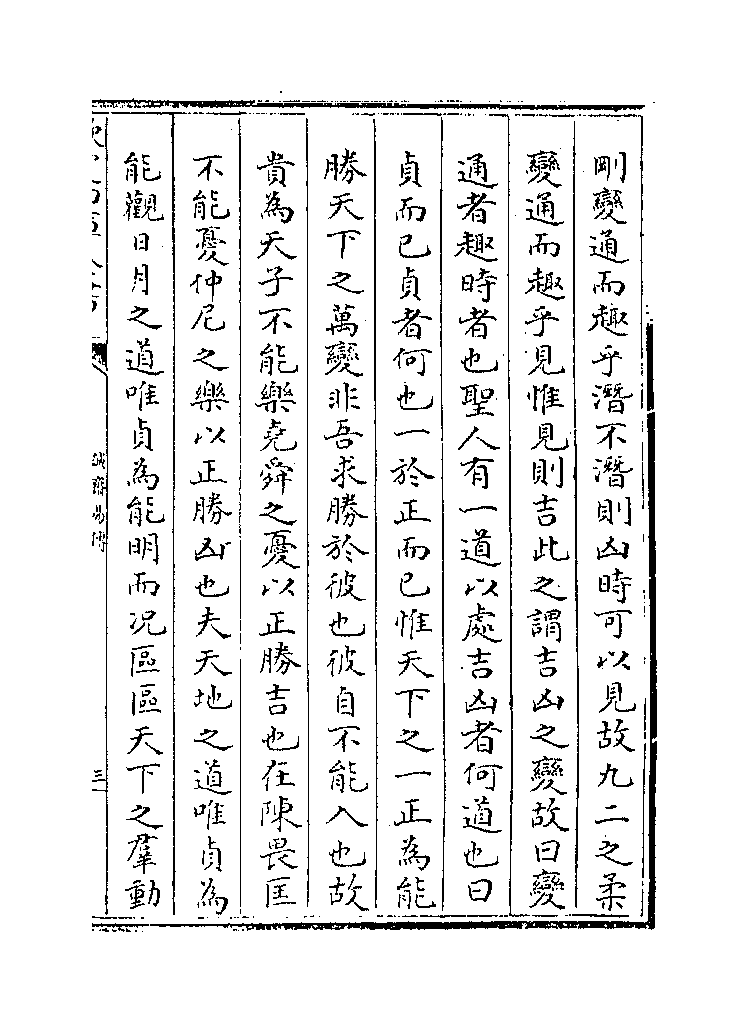 剛變通而趣乎潛不潛則凶時可以見故九二之柔
變通而趣乎見惟見則吉此之謂吉凶之變故曰變
通者趣時者也聖人有一道以處吉凶者何道也曰
貞而已貞者何也一於正而已惟天下之一正為能
勝天下之萬變非吾求勝於彼也彼自不能入也故
貴為天子不能樂堯舜之憂以正勝吉也在陳畏匡
不能憂仲尼之樂以正勝凶也夫天地之道唯貞為
能觀日月之道唯貞為能明而况區區天下之羣動
誠齋易傳
三